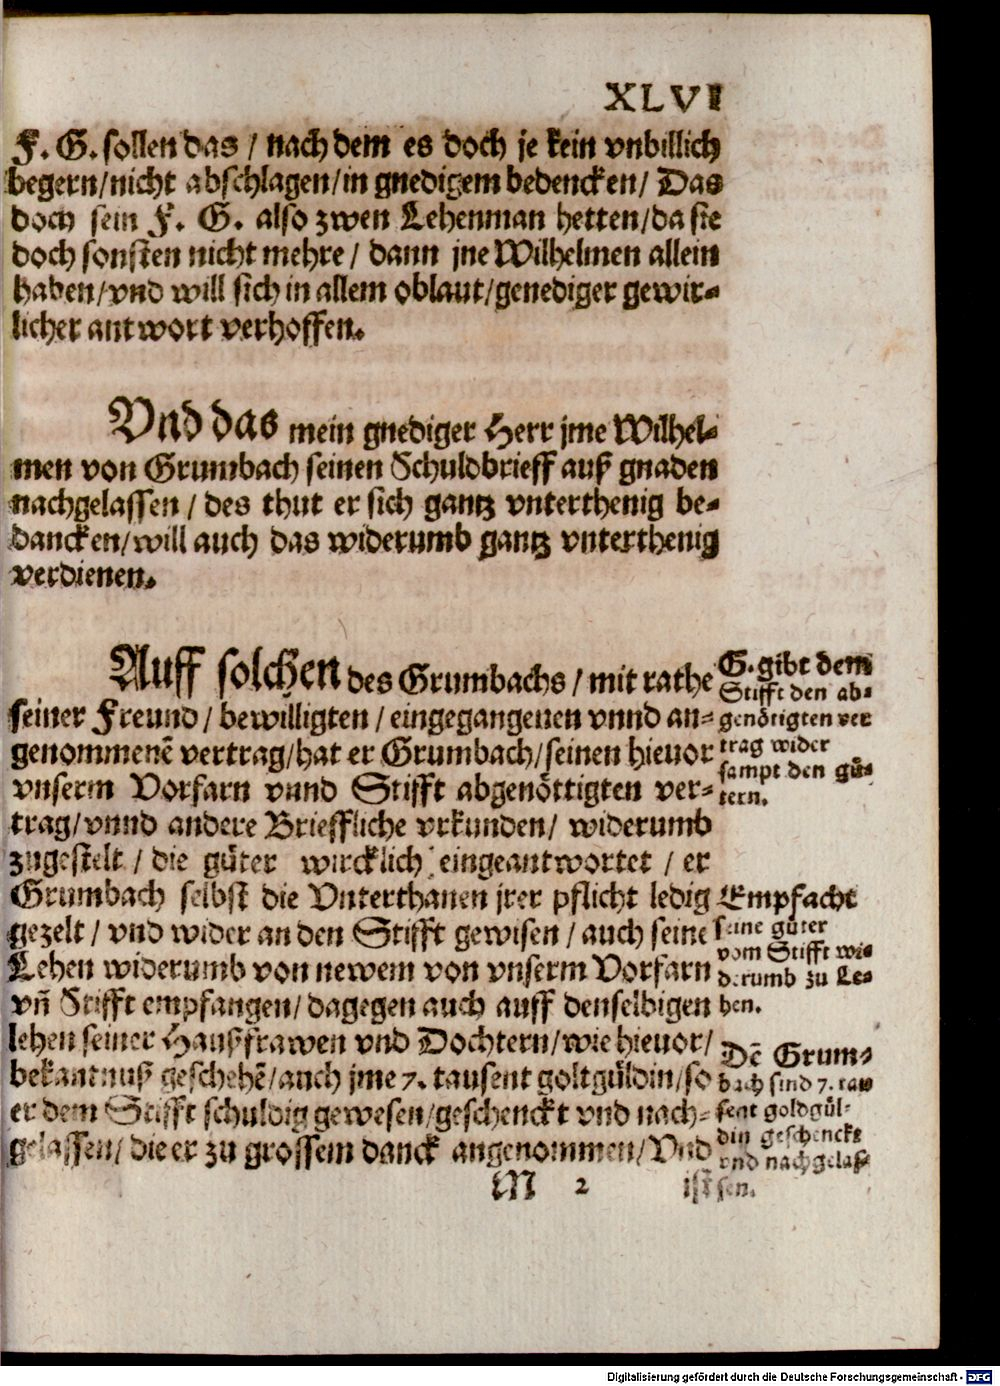 XLVI
F. G. sollen das / nach dem es doch je kein vnbillich
begern/nicht abschlagen/in gnedigem bedencken/ Das
doch sein F. G. also zwen Lehenman hetten/da sie
doch sonsten nicht mehre / dann jne Wilhelmen allein
haben/vnd will sich in allem oblaut/genediger gewir-
licher antwort verhoffen.
Vnd das mein gnediger Herr jme Wilhel-
men von Grumbach seinen Schuldbrieff auß gnaden
nachgelassen / des thut er sich gantz vnterthenig be-
dancken/will auch das widerumb gantz vnterthenig
verdienen.
Auff solchen des Grumbachs / mit rathe
seiner Freund / bewilligten / eingegangenen vnnd an-
genommenē vertrag/hat er Grumbach/seinen hieuor
vnserm Vorfarn vnnd Stifft abgenöttigten ver-
trag/vnnd andere Brieffliche vrkunden/ widerumb
zugestelt / die güter wircklich eingeantwortet / er
Grumbach selbst die Vnterthanen jrer pflicht ledig
gezelt / vnd wider an den Stifft gewisen / auch seine
Lehen widerumb von newem von vnserm Vorfarn
vñ Stifft empfangen/dagegen auch auff denselbigen
lehen seiner Haußfrawen vnd Dochtern/wie hieuor/
bekantnuß geschehē/auch jme 7. tausent goltgüldin/so
er dem Stifft schuldig gewesen/geschenckt vnd nach-
gelassen/die er zu grossem danck angenommen/Vnd
M 2
ist
G. gibt dem
Stifft den ab-
genötigten ver
trag wider
sampt den gü-
tern.
Empfacht
seine güter
vom Stifft wi-
derumb zu Le-
hen.
Dē Grum-
bach sind 7. tau
sent goldgül-
din geschenckt
vnd nachgelas-
sen.
Digitalisierung gefördert durch die Deutsche Forschungsgemeinschaft - DFG